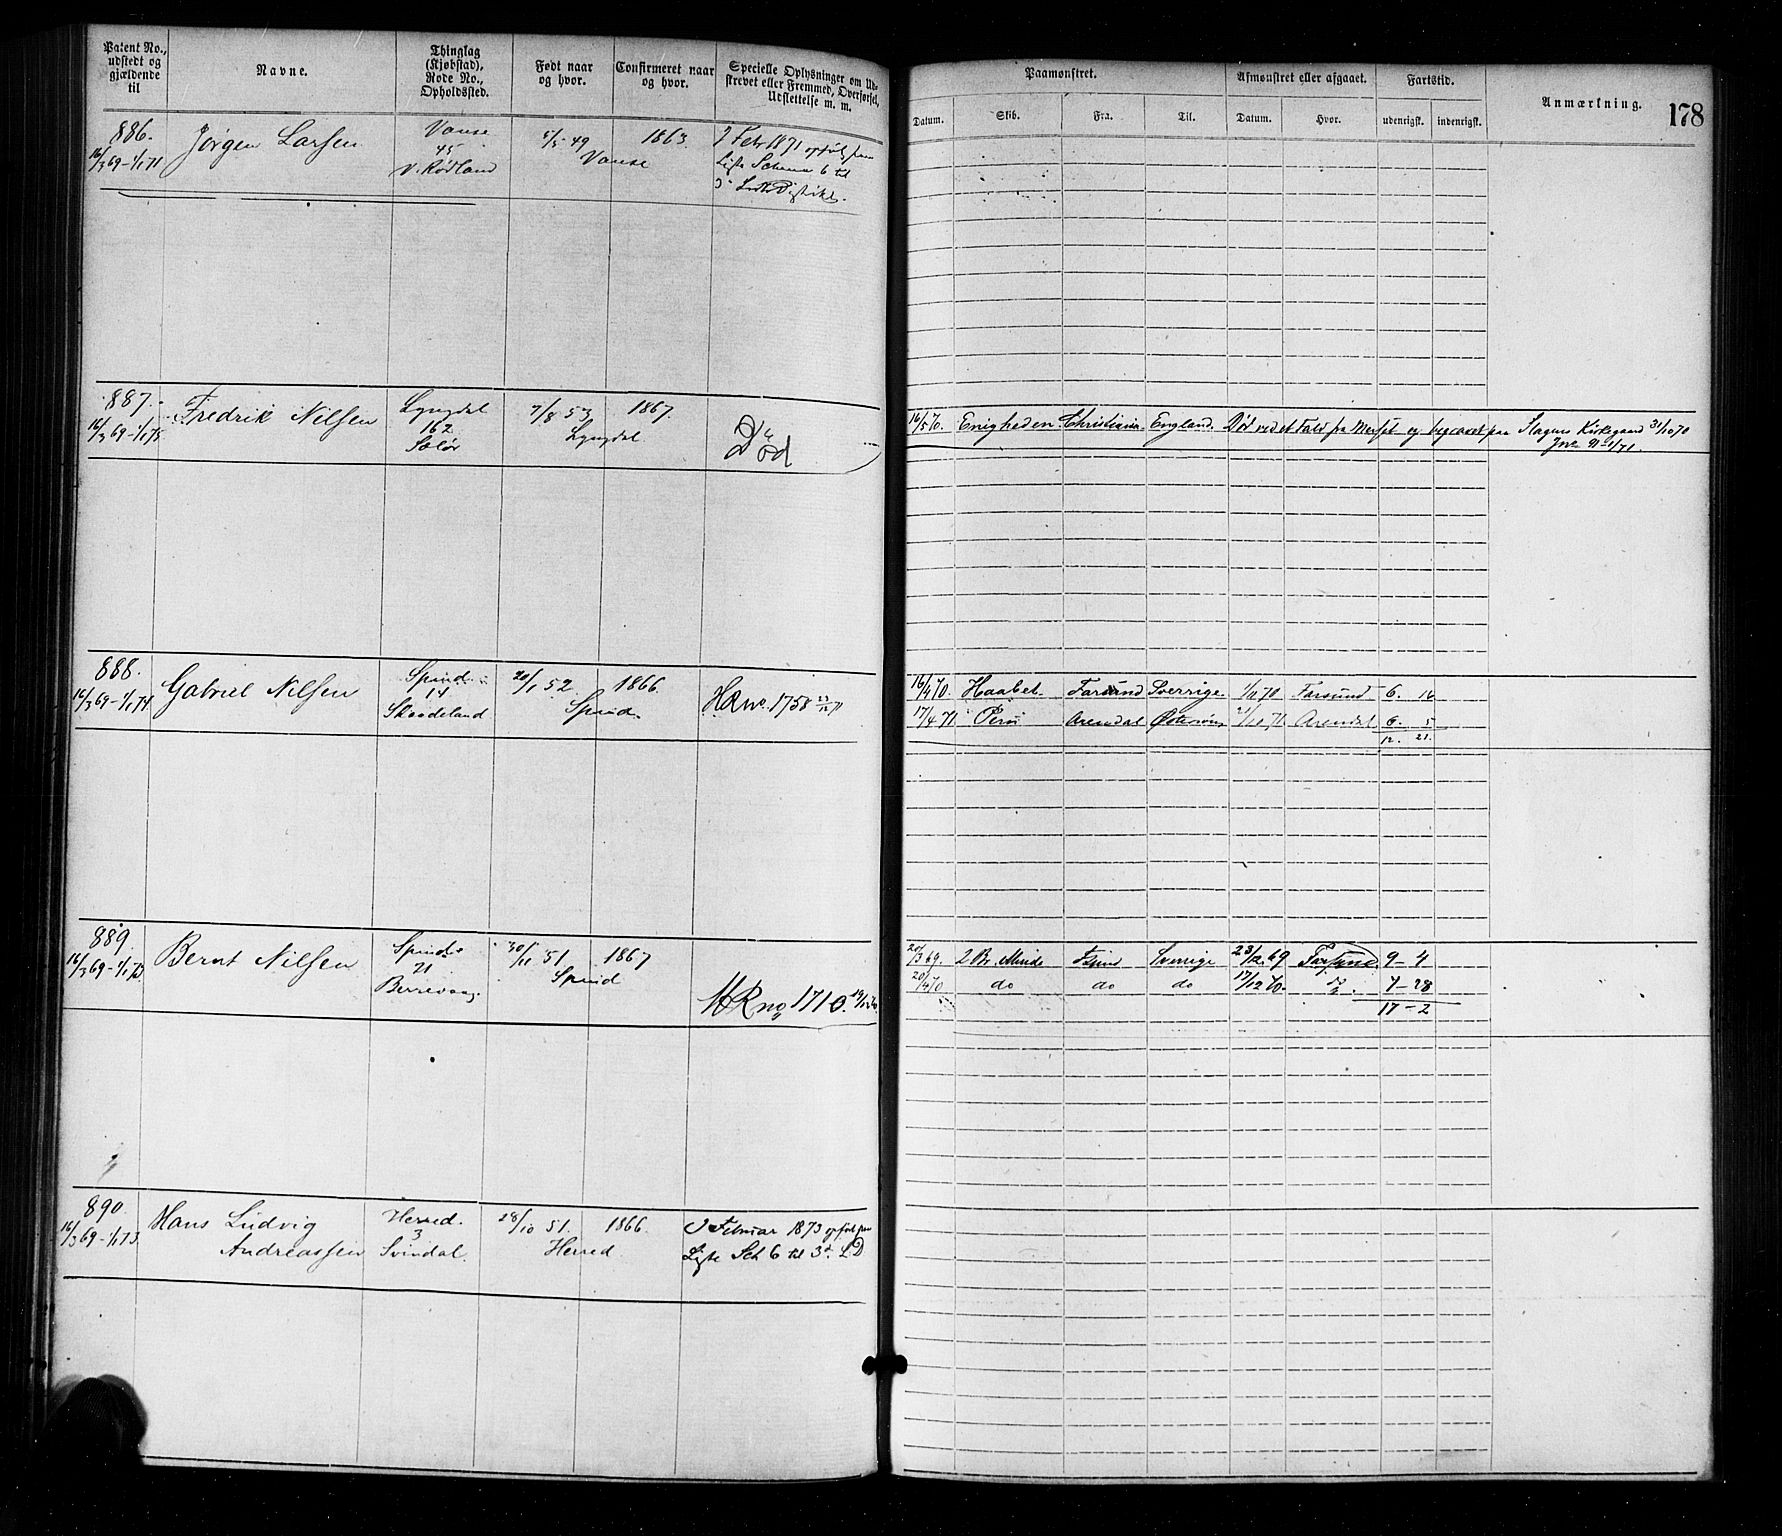 Patent No., udstedt og gjældende til
Navne.
Thinglag (Kjøbstad), Rode No., Opholdssted.
Født naar og hvor.
Confirmeret naar og hvor.
Specielle Oplysninger om Udskrevet eller Fremmed, Overførsel, Udslettelse m. m.
Paamønstret.
Afmønstret eller afgaaet.
Fartstid.
Anmærkning.
178
Datum.
Skib.
Fra.
Til.
Datum.
Hvor.
udenrigsk.
indenrigsk.
886.
16/3 69 - 1/1 71
Jørgen Larsen
Vanse
45
V. Rødland
5/5 - 49
1863
Vanse
J Febr 1871 opført paa
Ligste Schema 6 til
887.
16/3 69 - 1/1 75
Fredrik Nilsen
Lyngdal
162
Sælør
7/8 53
1867.
Lyngdal
Død
16/5 70.
Enigheden
Christiania
England.
Død ved et Fald fra Merset og begravet paa Slagens Kirkegaard 31/10 70
888.
16/3 69 - 1/1 74
Gabriel Nilsen
Spind
14
Skaadeland
20/1 52
1866
Spind
HR no. 1758
16/4 70.
Haabet
Farsund
Sverrige
Farsund
6. 16
17/4 71
Peru
Arendal
Arendal
6. 5
12. 21.
889
16/3 69 - 1/1 73
Bernt Nilsen
Spind
21
30/11 51
1867
Spind
HR no 1710
20/3 69.
2 Br. Minde
Fsund
Sverrige
23/12 69
Farsund
9 - 4
20/4 70
do
do
do
17/12 70.
7 - 28
17 - 2
890.
16/3 69 - 1/1 73
Hans Ludvig
Andreassen
Herred.
3
Svindal.
28/10 51.
1866.
Herred
J Februar 1873 opført paa
Ligste Sch 6 til 3d. LD